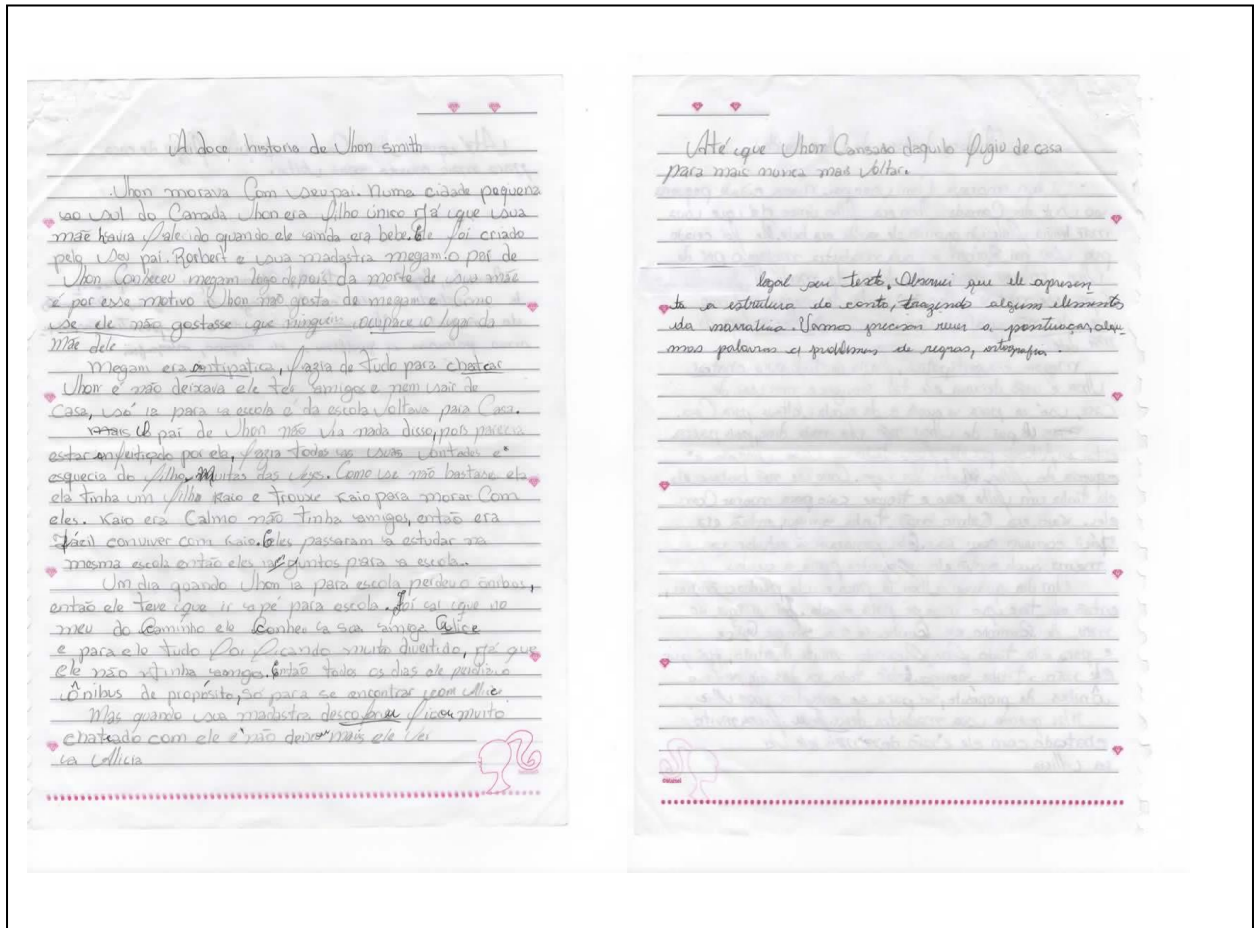 A doce historia de Jhon smith
Jhon morava Com seu pai. Numa cidade pequena
ao sul do Canada Jhon era filho único já que sua
mãe havia falecido quando ele ainda era bebe. Ele foi criado
pelo seu pai. Rorbert e sua madastra megam. o pai de
Jhon Conheceu megam logo depois da morte de sua mãe
é por esse motivo Jhon não gosta de megam e Como
se ele não gostasse que ninguém ocupace o lugar da
mãe dele
Megam era antipatica, fazia de tudo para chatear
Jhon e não deixava ele ter amigos e nem sair de
Casa, só ia para a escola e da escola voltava para Casa.
mais o pai de Jhon não via nada disso, pois parecia
estar enfeitiçado por ela, fazia todas as suas vontades e
esquecia do filho, muitas das vezes. Como se não bastase ela
ela tinha um filho Kaio e trouxe Kaio para morar Com
eles. Kaio era Calmo não tinha amigos, então era
fácil conviver com Kaio. Eles passaram a estudar na
mesma escola então eles juntos para a escola.
Um dia quando Jhon ia para escola perdeu o ônibus,
então ele teve que ir a pé para escola. foi ai que no
meu do Caminho ele Conheu a sua amiga Alice
e para ele tudo foi ficando muito divertido, já que
Ele não tinha amigo. Então todos os dias ele perdia o
Ônibus de propósito, só para se encontrar com Allice
Mas quando sua madastra descobreu ficou muito
chateado com ele e não deixou mais ele ver
a Allicia
Até que Jhon Cansado daquilo fugio de casa
para mais nunca mais voltar.
legal seu texto. Observei que ele apresen
ta a estrutura do conto, trazendo algum elementos
da narrativa. Vamos precisar rever a pontuação, algu
mas palavras e problemas de regras, ortografia.